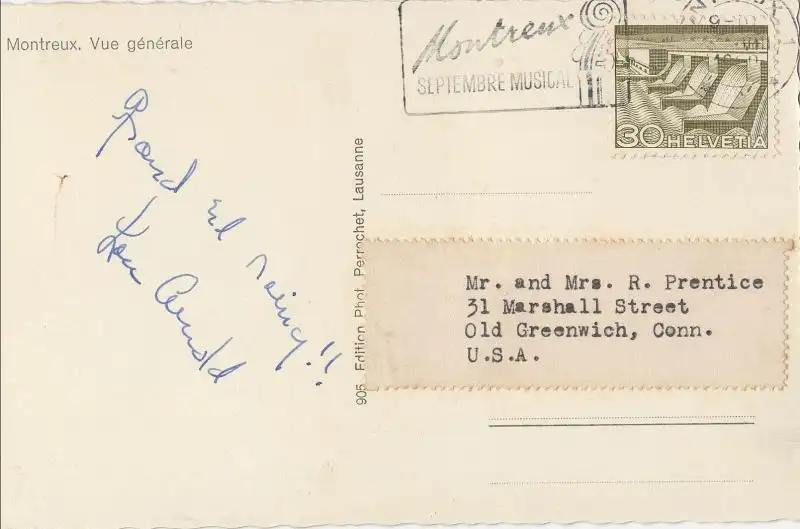 Montreux. Vue générale
Montreux
SEPTEMBRE MUSICAL
30 HELVETIA
Grand and rainy!!
Lou Arnold
905 Edition Phot. Perrochet, Lausanne
Mr. and Mrs. R. Prentice
31 Marshall Street
Old Greenwich, Conn.
U.S.A.